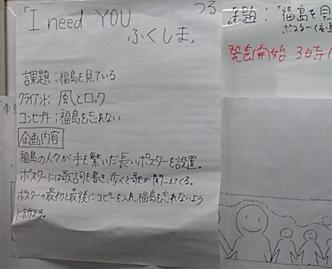 「I need YOU
つる
ふくしま」
課題：福島を見ている
クライアント：風とロック
コンセプト：福島を忘れない
企画内容
福島の人々が手を繋いだ長いポスターを設置。
ポスターには歌詞を書き、歩くと歌が聞こえてくる。
ポスターの最初と最後にコピーを入れ、福島を忘れないよう
に訴える。
課題：「福島を見
ポスター
発表開始 3時